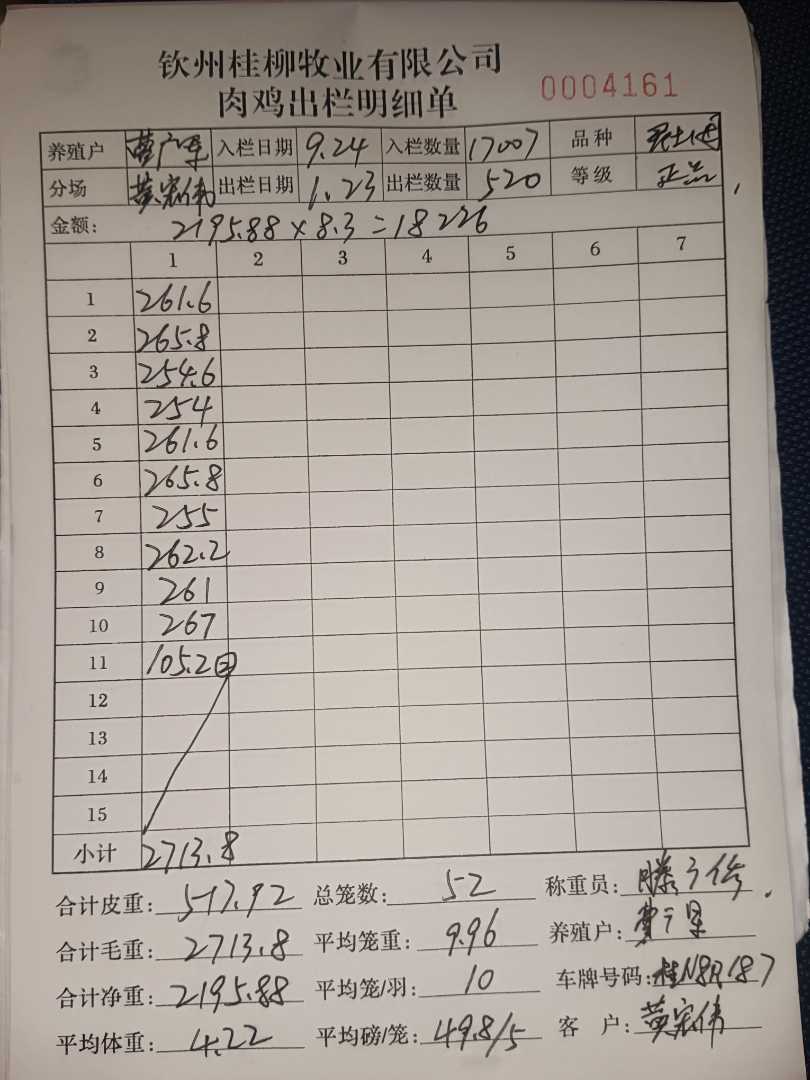 钦州桂柳牧业有限公司
肉鸡出栏明细单 0004161
养殖户 入栏日期 9.24 入栏数量 17007 品种
分场 黄宏伟 出栏日期 1.23 出栏数量 520 等级 正品
金额: 2195.88×8.3=18226
1 2 3 4 5 6 7
1 261.6
2 265.8
3 254.6
4 254
5 261.6
6 265.8
7 255
8 262.2
9 261
10 267
11 105.2 ②
12
13
14
15
小计 2713.8
合计皮重: 517.92 总笼数: 52 称重员:
合计毛重: 2713.8 平均笼重: 9.96 养殖户:
合计净重: 2195.88 平均笼/羽: 10 车牌号码:
平均体重: 4.22 平均磅/笼: 49.8/5 客户: 黄宏伟